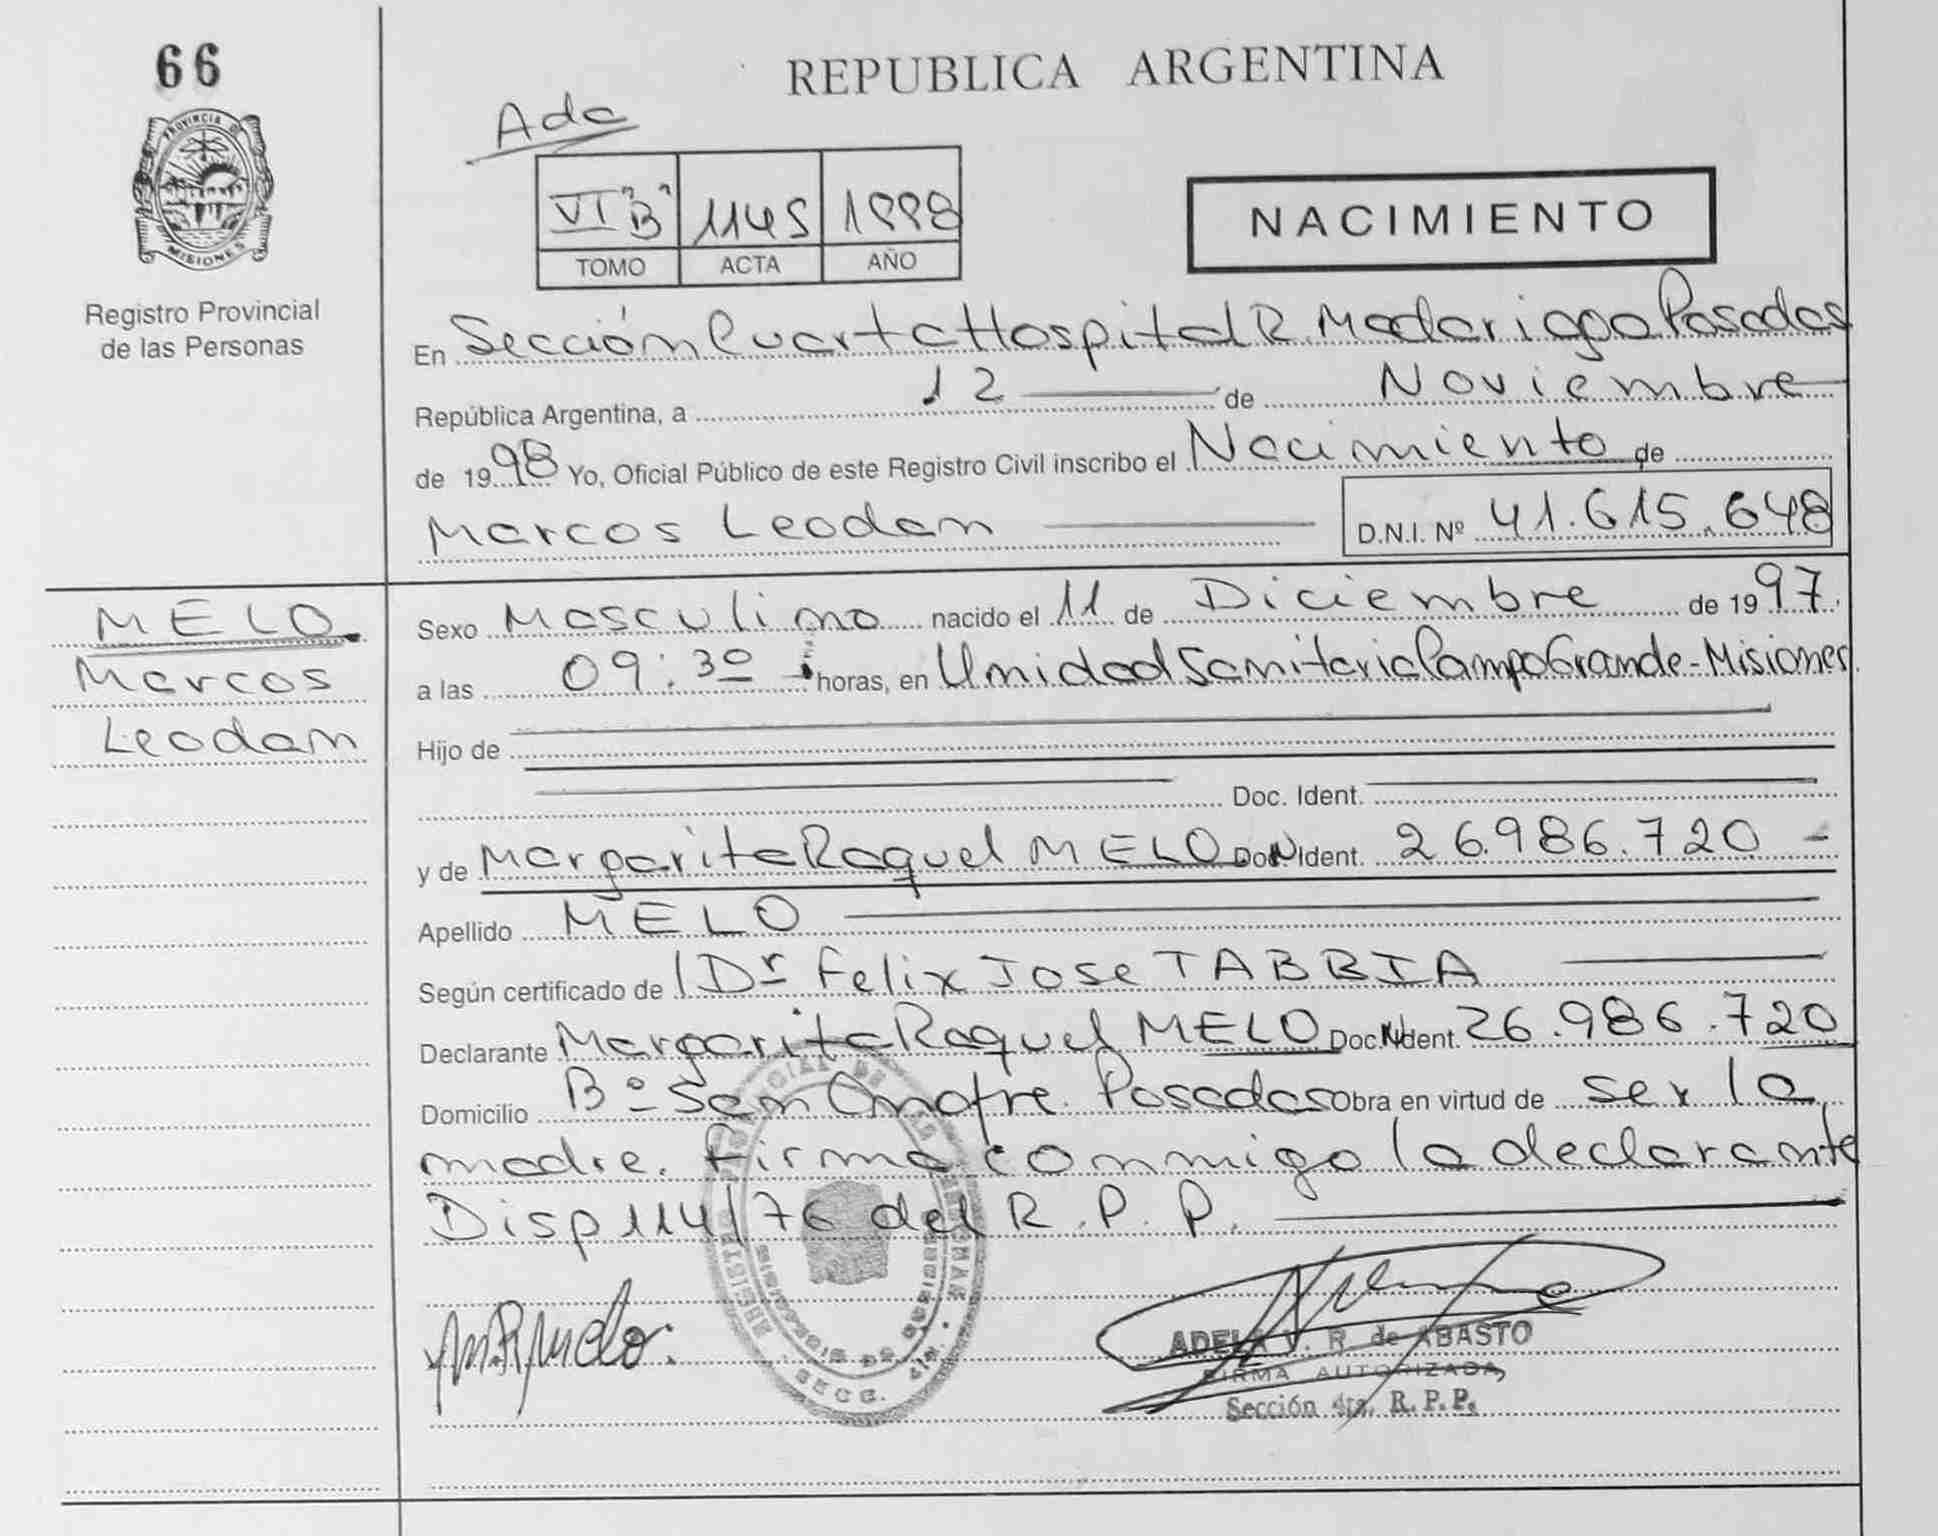 66
PROVINCIA DE
MISIONES
Registro Provincial
de las Personas
REPUBLICA ARGENTINA
Ada
VI "B" 1145 1998
TOMO ACTA AÑO
NACIMIENTO
En Sección Cuarta Hospital R. Madariaga Posadas
República Argentina, a 12 de Noviembre
de 1998 Yo, Oficial Público de este Registro Civil inscribo el Nacimiento de
Marcos Leodan D.N.I. Nº 41.615.648
MELO
Marcos
Leodan
Sexo Masculino nacido el 11 de Diciembre de 1997.
a las 09:30 horas, en Unidad Sanitaria Campo Grande-Misiones.
Hijo de
Doc. Ident.
y de Margarita Raquel MELO Doc. Ident. 26.986.720
Apellido MELO
Según certificado de Dr Felix Jose TABBIA
Declarante Margarita Raquel MELO Doc. Ident. 26.986.720
Domicilio Bº San Onofre Posadas Obra en virtud de ser la
madre. Firma conmigo la declarante
Disp 114/76 del R.P.P.
M.R. Melo
ADELA V. R. de ABASTO
FIRMA AUTORIZADA
Sección 4ta. R.P.P.